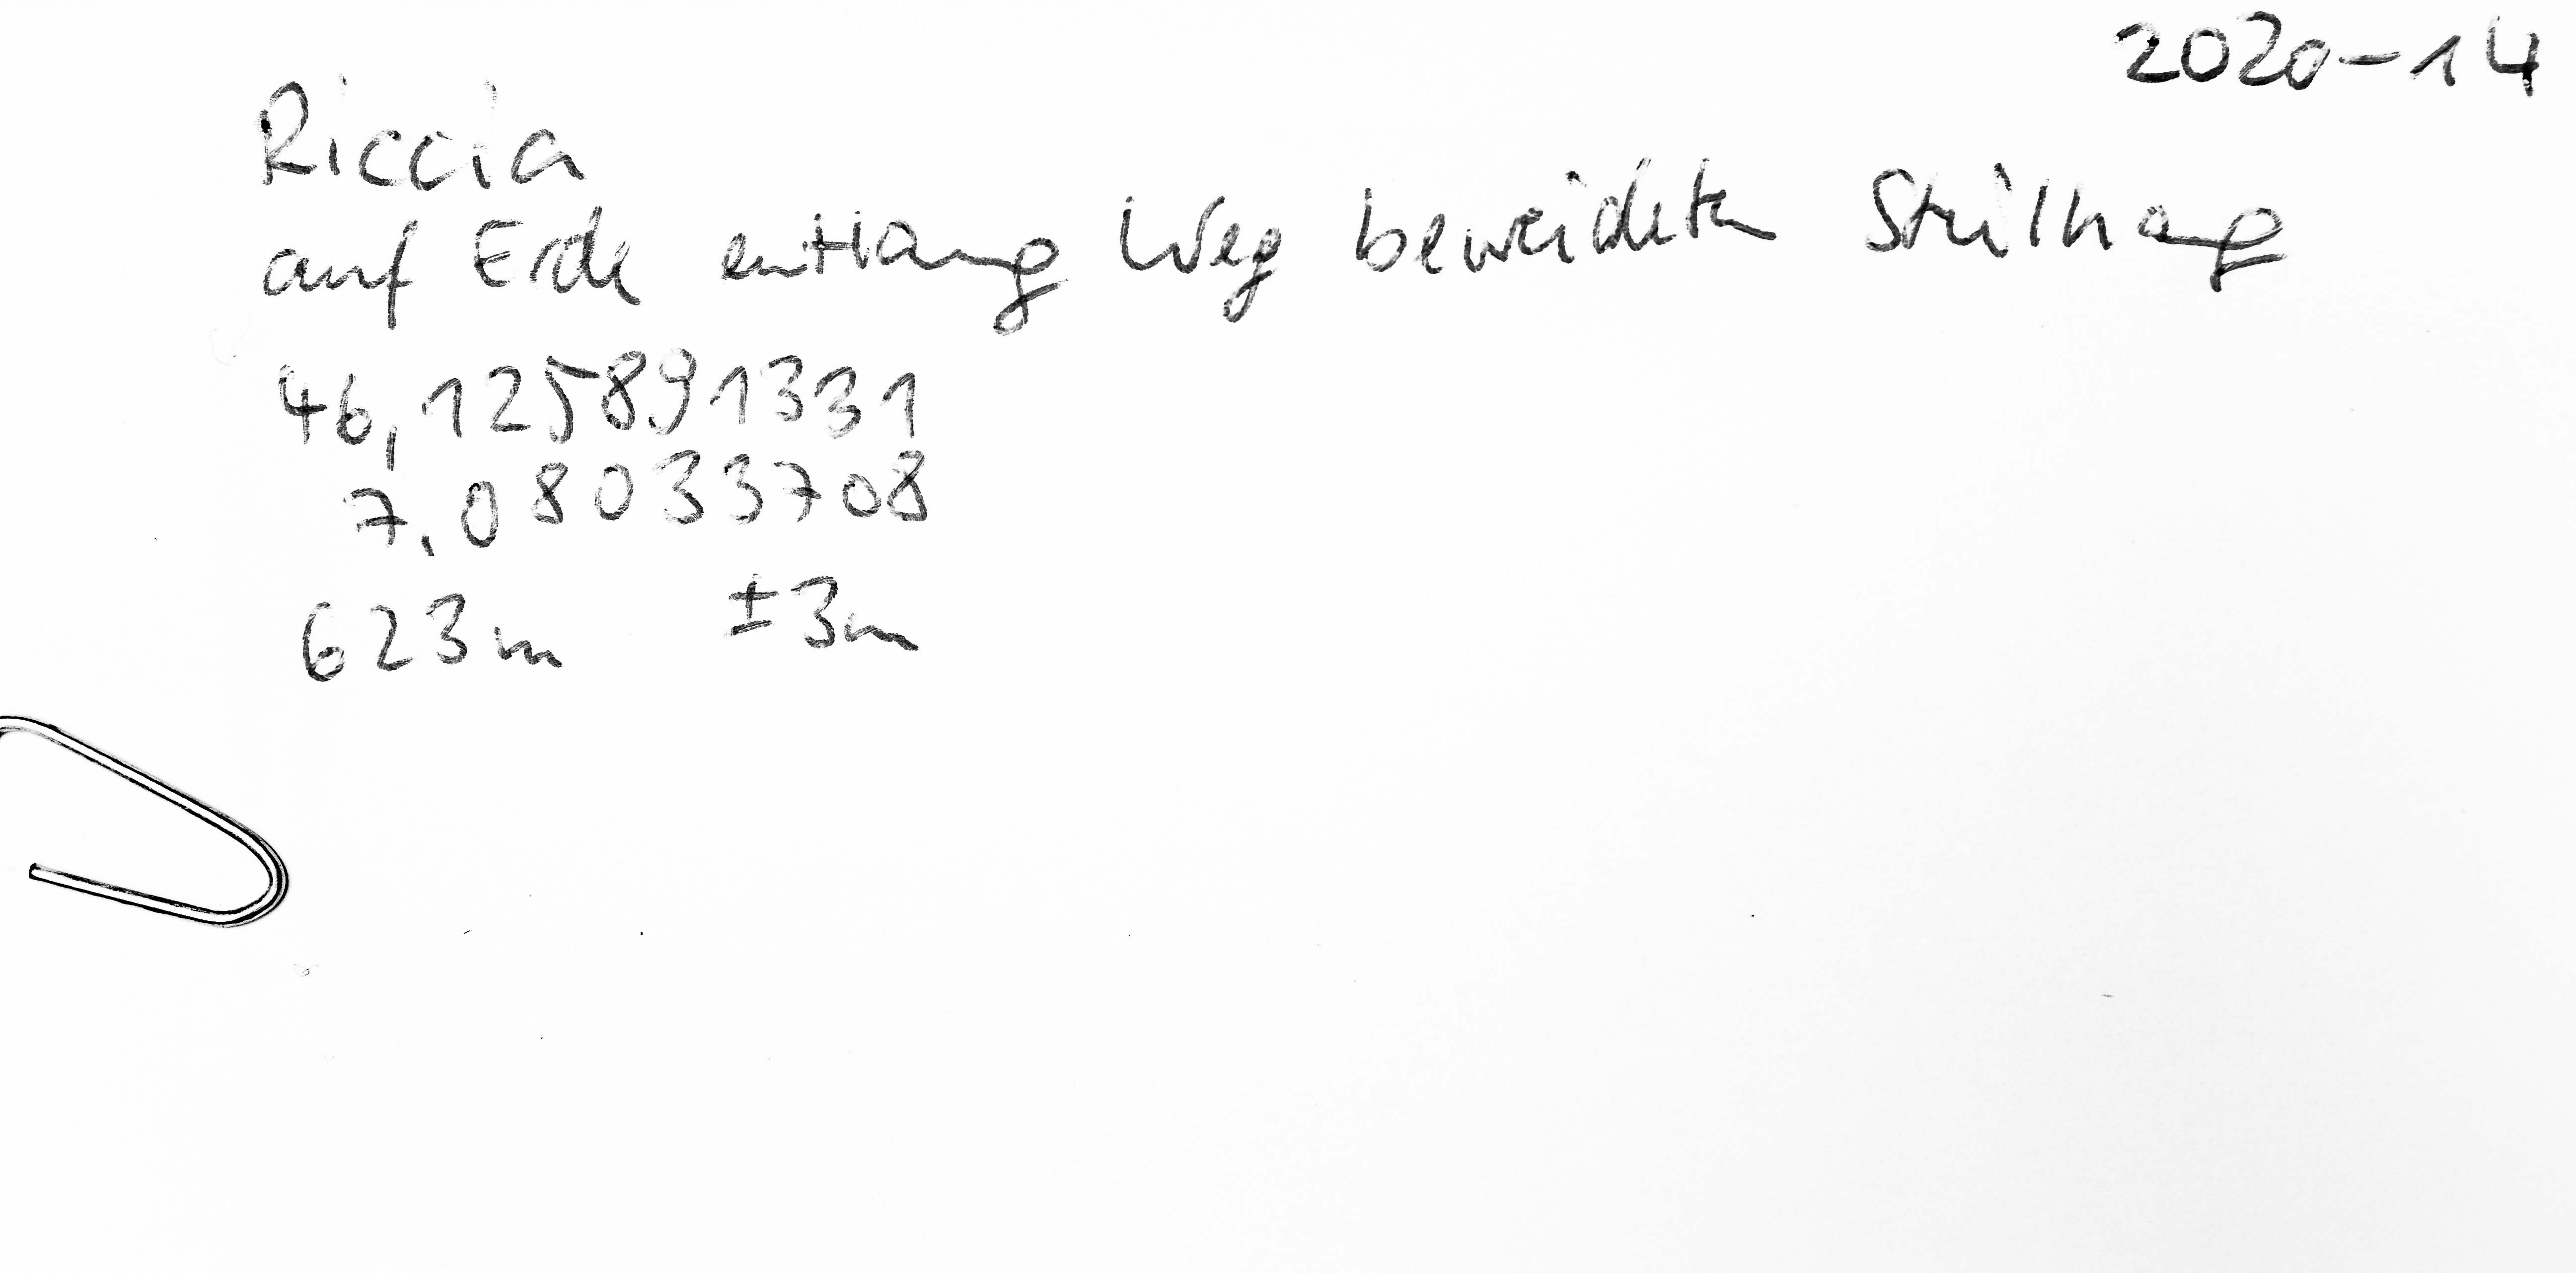 2020-14
Riccia
auf Erde entlang Weg beweideten Steilhang
46,125891331
7,08033708
623m ±3m